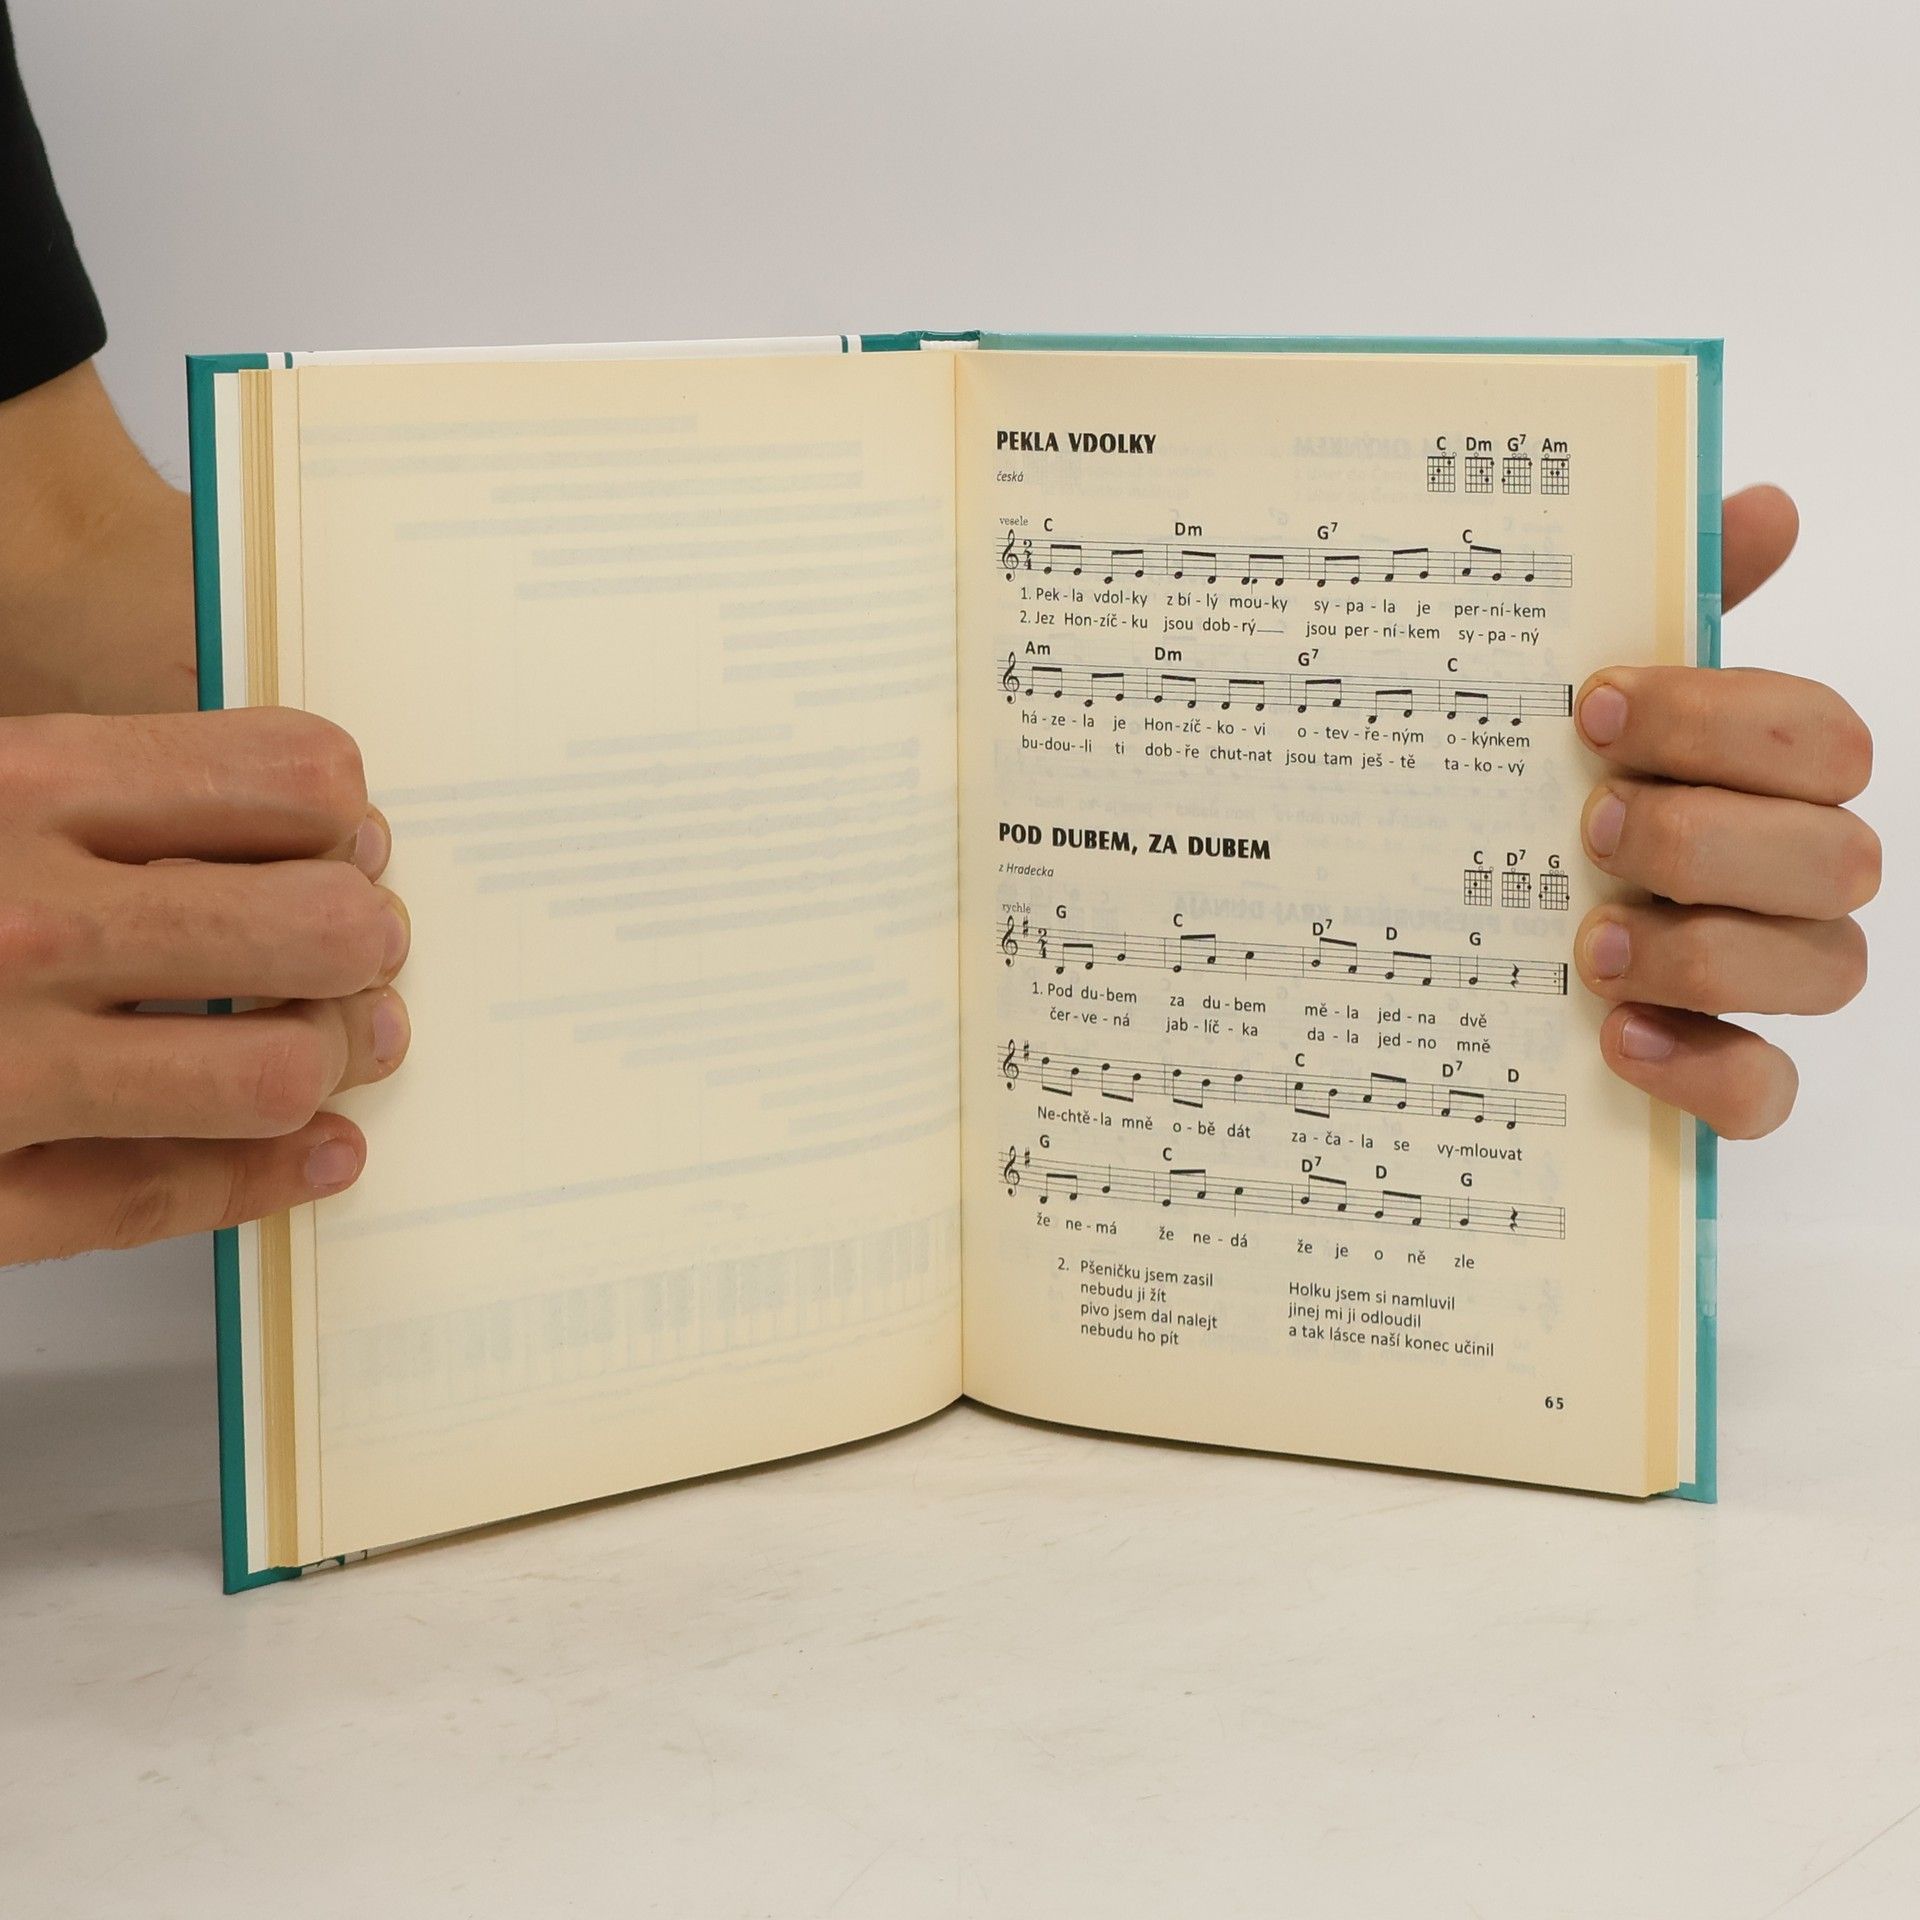 PEKLA VDOLKY
C Dm G7 Am
česká
vesele C Dm G7 C
1. Pek - la vdol-ky z bí - lý mou-ky sy - pa - la je per-ní-kem
2. Jez Hon-zíč - ku jsou dob-rý jsou per-ní-kem sy-pa-ný
Am Dm G7 C
há - ze - la je Hon-zíč - ko - vi o - tev - ře-ným o - kýnkem
bu-dou--li ti dob-ře chut-nat jsou tam ješ - tě ta - ko - vý
POD DUBEM, ZA DUBEM
C D7 G
z Hradecka
rychle G C D7 D G
1. Pod du-bem za du - bem mě - la jed - na dvě
čer-ve - ná jab - líč - ka da - la jed - no mně
C D7 D
Ne-chtě-la mně o - bě dát za - ča - la se vy-mlouvat
G C D7 D G
že ne - má že ne - dá že je o ně zle
2. Pšeničku jsem zasil
nebudu ji žít
pivo jsem dal nalejt
nebudu ho pít
Holku jsem si namluvil
jinej mi ji odloudil
a tak lásce naší konec učinil
65